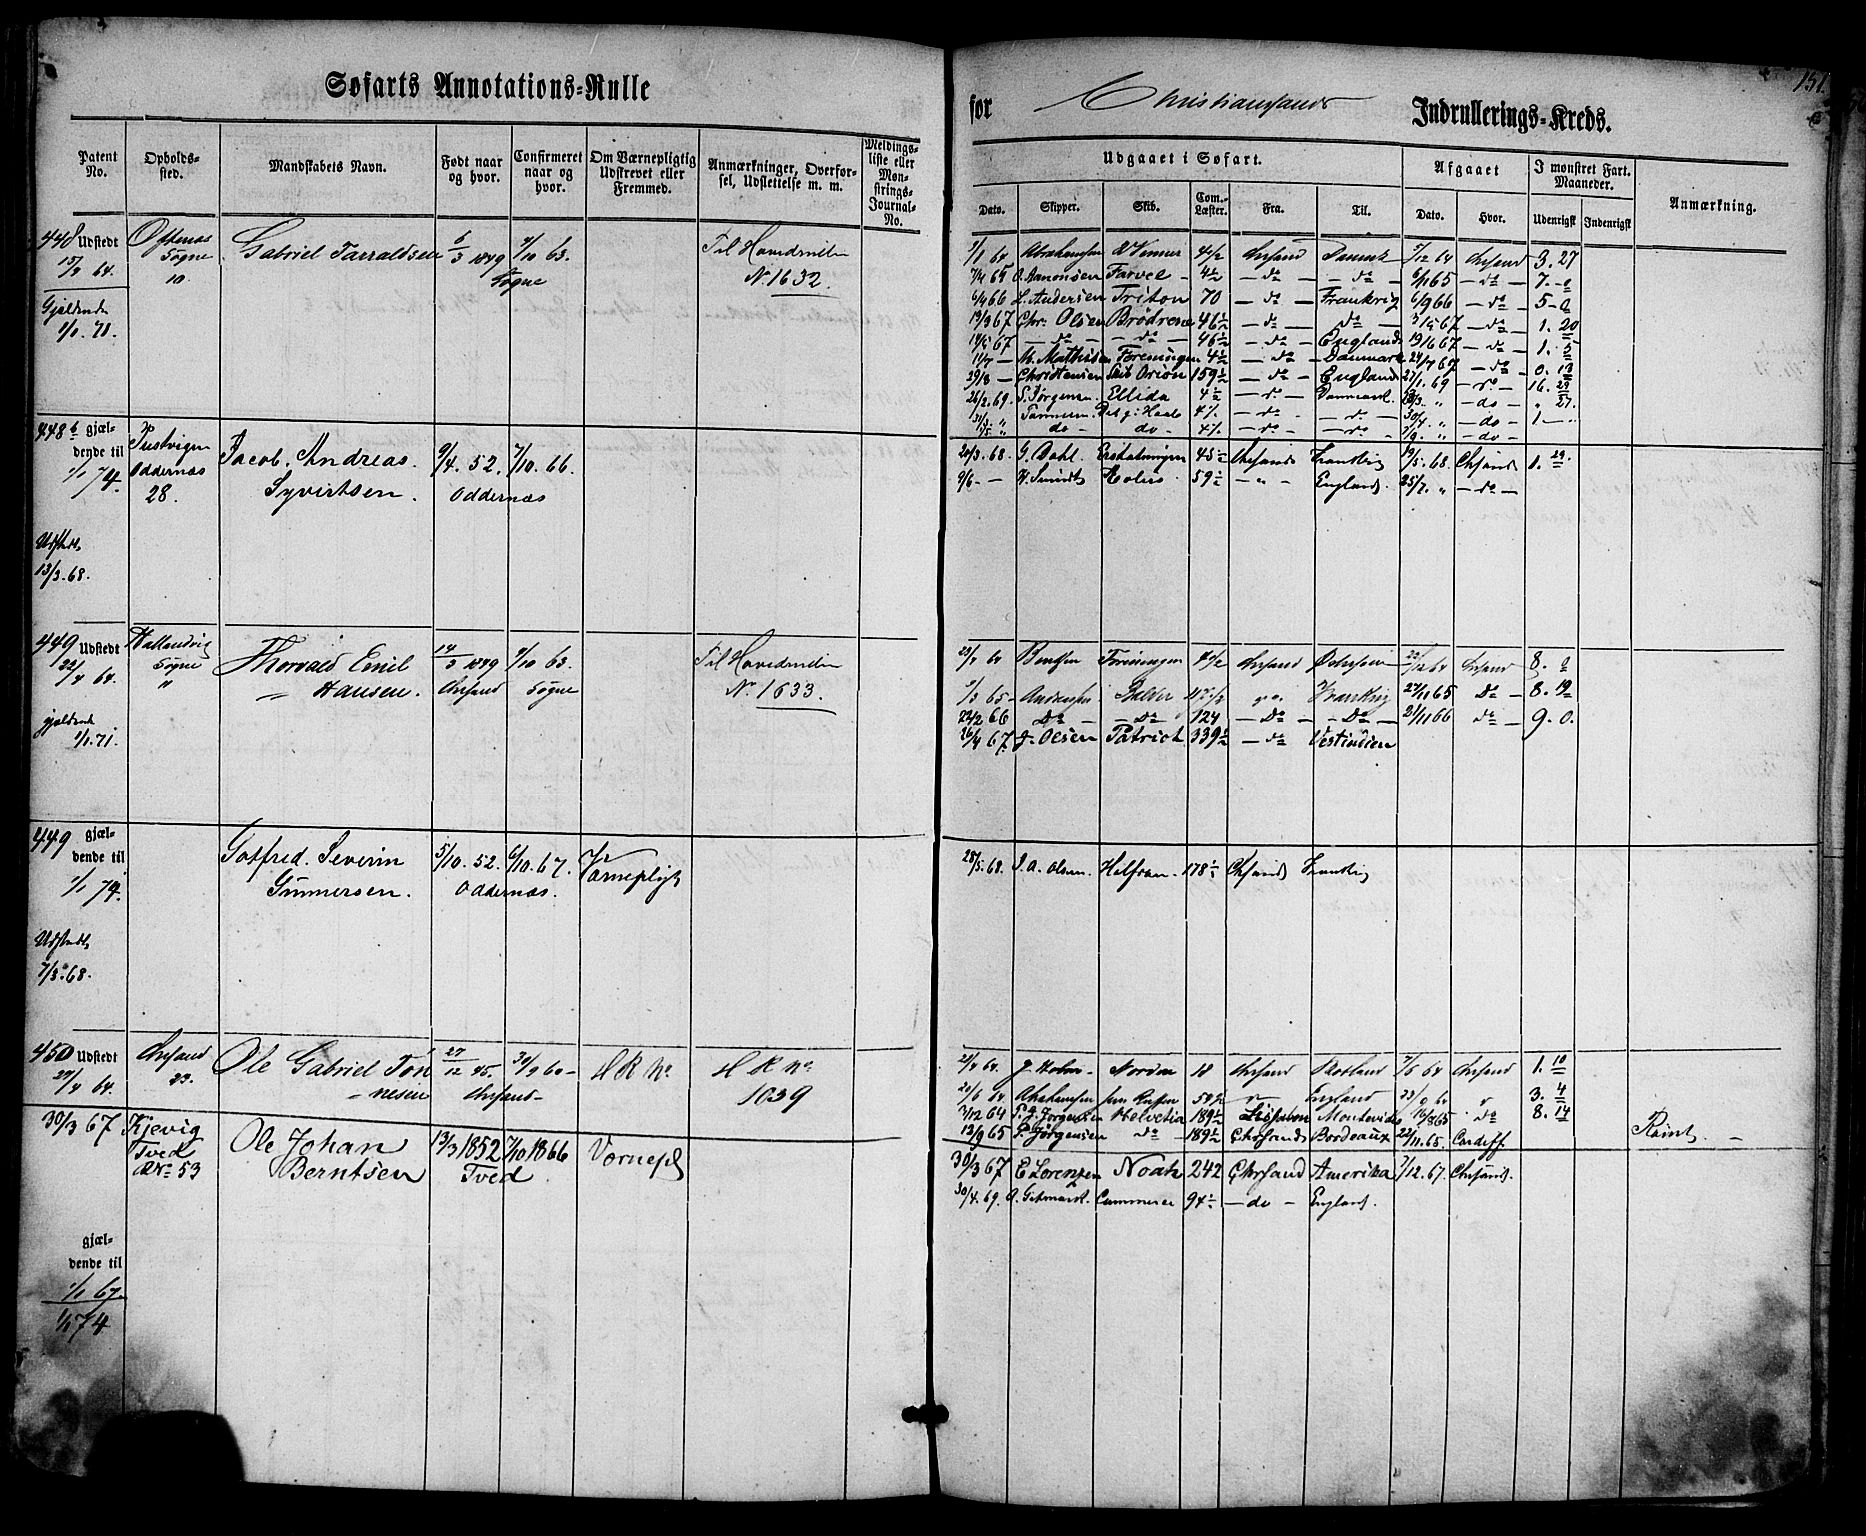 Søfarts Annotations-Rulle
Patent No.
Opholdssted.
Mandskabets Navn.
Født naar og hvor.
Confirmeret naar og hvor.
Om Værnepligtig Udskrevet eller Fremmed.
Anmærkninger, Overførsel, Udslettelse m. m.
Meldingsliste eller Mønstrings-Journal-No.
448 Udstedt
15/3 64.
Gjældende
1/1. 71.
Søgne
10.
Gabriel Tarraldsen
6/3 1849
4/10 63.
Søgne
Til Hovedrullen
No 1632.
448 b gjældende til
1/1 74.
Udstedt
13/3. 68.
Justvigen
Oddernæs
28.
Jacob. Andreas.
Syvertsen.
9/4. 52.
Oddernæs
7/10. 66.
449 Udstedt
22/4 64.
gjældende
1/1. 71.
Søgne
"
Thorvald Emil
Hansen.
14/3 1849
Chrsand
4/10 63.
Søgne
Til Hovedrullen
No. 1633.
449 gjældende til
1/1 74.
Udstedt
7/3. 68.
Gotfred. Severin
Gunnersen.
5/10. 52.
6/10. 67.
Oddernæs.
Værnepligt
450 Udstedt
27/4 64.
Chrsand
23.
Ole Gabriel Tønnesen
27/12 45.
Chrsand
30/9 60
H R No
H R No
1039
30/3 67
Kjevig
Tved
No 53
Ole Johan
Berntsen
13/3 1852
Tved
7/10 1866
Vørnepl
gjældende til
1/1 67.
1/1 74
for Christiansands Indrullerings-Kreds.
151.
Udgaaet i Søfart.
Afgaaet
I mønstret Fart. Maaneder.
Anmærkning.
Dato.
Skipper.
Skib.
Com. Læster.
Fra.
Til.
Dato.
Hvor.
Udenrigst
Indenrigst
Abrahamsen 4 1/2 Chrsand Danmk 7/12 64 Chrsand 3. 27
O. Aanonsen Farvel 4 1/2 do do 6/11 65 do 7.
6/4 66 L. Andersen Triton 70 do Frankrig 6/9 66 do 5
19/3 67 Chr. Olsen Brødrene 46 1/2 do do do 1. 20
14/5 67 do do 46 1/2 do England 19/6 67 do 1. 5
11/7 M. Mathisen Foreningen 4 1/2 do Danmark 24/7 67 do 0. 13
29/8 Christensen Skib Orion 159 1/2 do England 27/1. 69 do 16. 29
26/2. 69. S. Jørgensen Ellida 4 1/2 do Danmark " do " 27.
do 30/4. " do 1
do do do do
20/3. 68. G. Dahl. Erstatningen 45 1/2 Chrsand Frankrig 19/5. 68. Chrsand 1. 29.
9/6. H. Smidt 59 1/2 " England. 25/7. " do
23/4 64 Bentsen Foreningen 4 1/2 Chrsand Østersøen 22/12 64 Chrsand 8.
7/3 65 Andersen Balder Frankrig 27/11 65 Do 8. 19
22/2 66 Do Do 124 Do Do 21/11 66 do 9. 0.
26/4 67. J. Olsen Patriot 339 1/2 do Vestindien
28/5. 68. J. A. Olsen. 178 1/2 Chrsand Frankrig
29/4 64. J. Holm Norden 18 Chrsand Skotland 7/6 64 Chrsand 1. 10
20/6 64. Abrahamsen 59 1/2 England 23/9 64 3. 4
7/12 64 S. J. Jørgensen Helvetia 189 1/2 Montevideo 16/8 65 do 8. 14
12/9 65 S. Jørgensen do 189 1/2 Chrsand Bordeaux 22/11. 65. Cardiff Rømt.
30/3 67 E. Lorenzen Noah 242 Chrsand Amerika 7/12. 67. Chrsand.
30/4. 69. 94 1/2 do England.